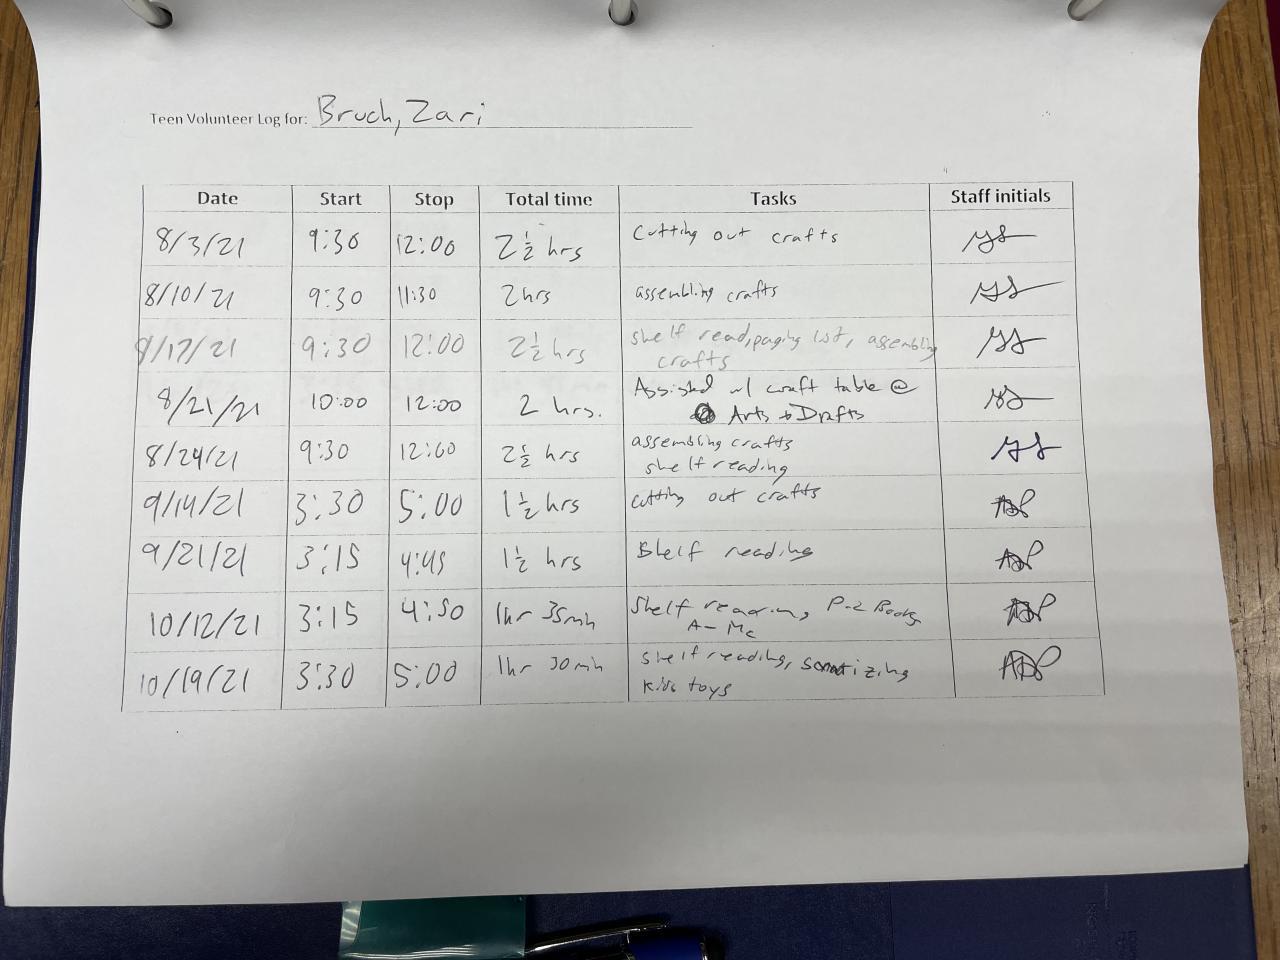 Teen Volunteer Log for: Bruch, Zari
Date Start Stop Total time Tasks Staff initials
8/3/21 9:30 12:00 2 1/2 hrs Cutting out crafts
8/10/21 9:30 11:30 2 hrs assembling crafts
8/17/21 9:30 12:00 2 1/2 hrs shelf read, paging list, assembling
crafts
8/21/21 10:00 12:00 2 hrs. Assisted w/ craft table @
Arts & Drafts
8/24/21 9:30 12:00 2 1/2 hrs assembling crafts
shelf reading
9/14/21 3:30 5:00 1 1/2 hrs cutting out crafts
9/21/21 3:15 4:45 1 1/2 hrs Shelf reading
10/12/21 3:15 4:50 1hr 35min Shelf reading, P-2 Books
A - Mc
10/19/21 3:30 5:00 1hr 30min shelf reading,
toys